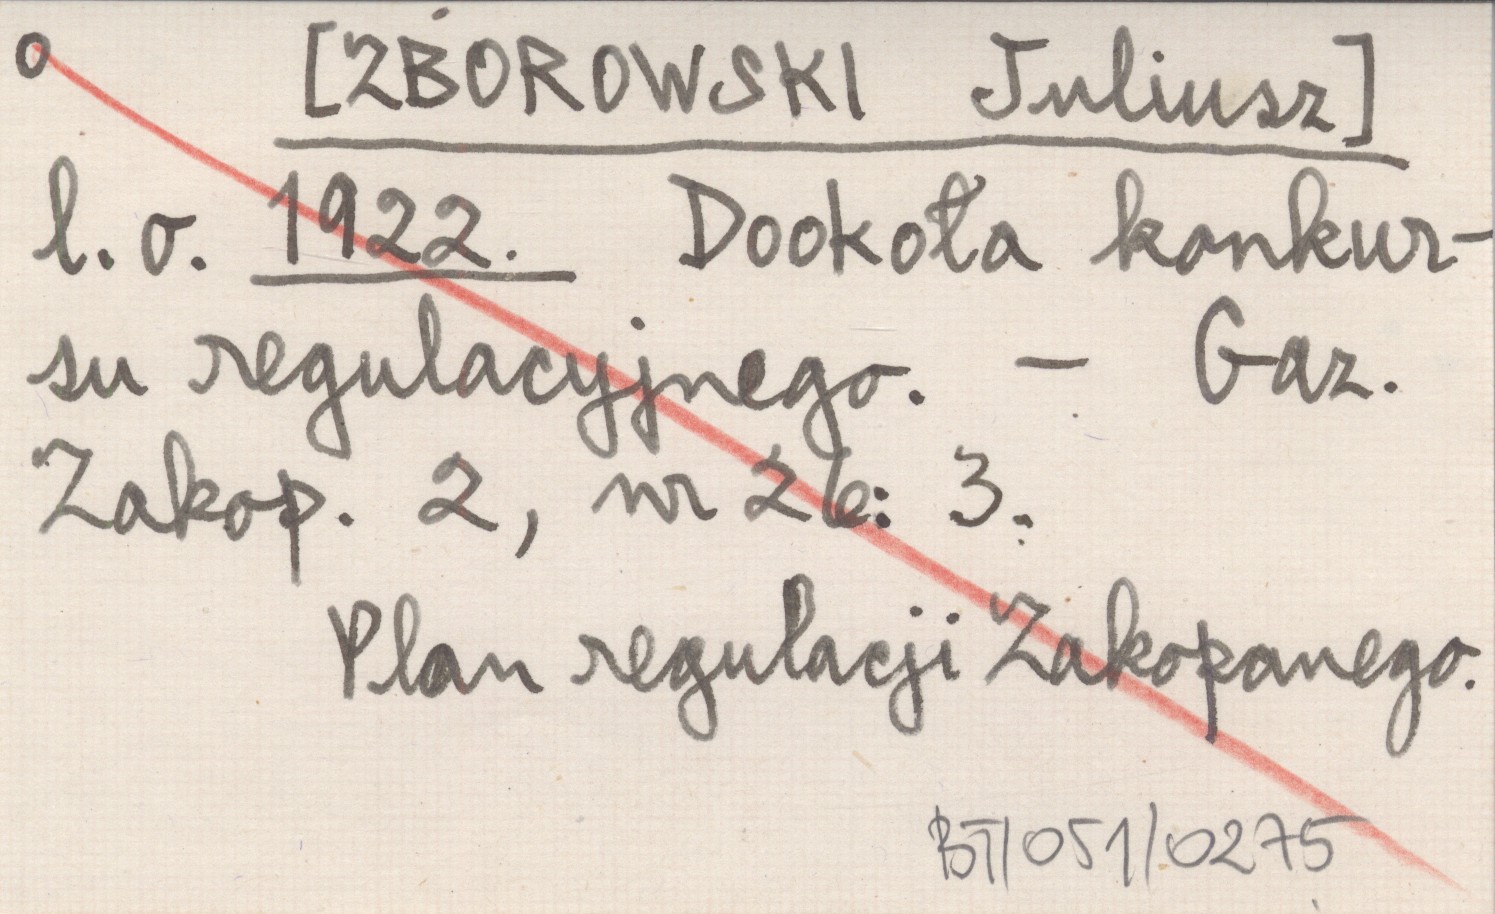 o [ZBOROWSKI Juliusz]
l. o. 1922. Dookoła konkur-
su regulacyjnego. — Gaz.
Zakop. 2, nr 26: 3.
Plan regulacji Zakopanego.
BT/051/0275